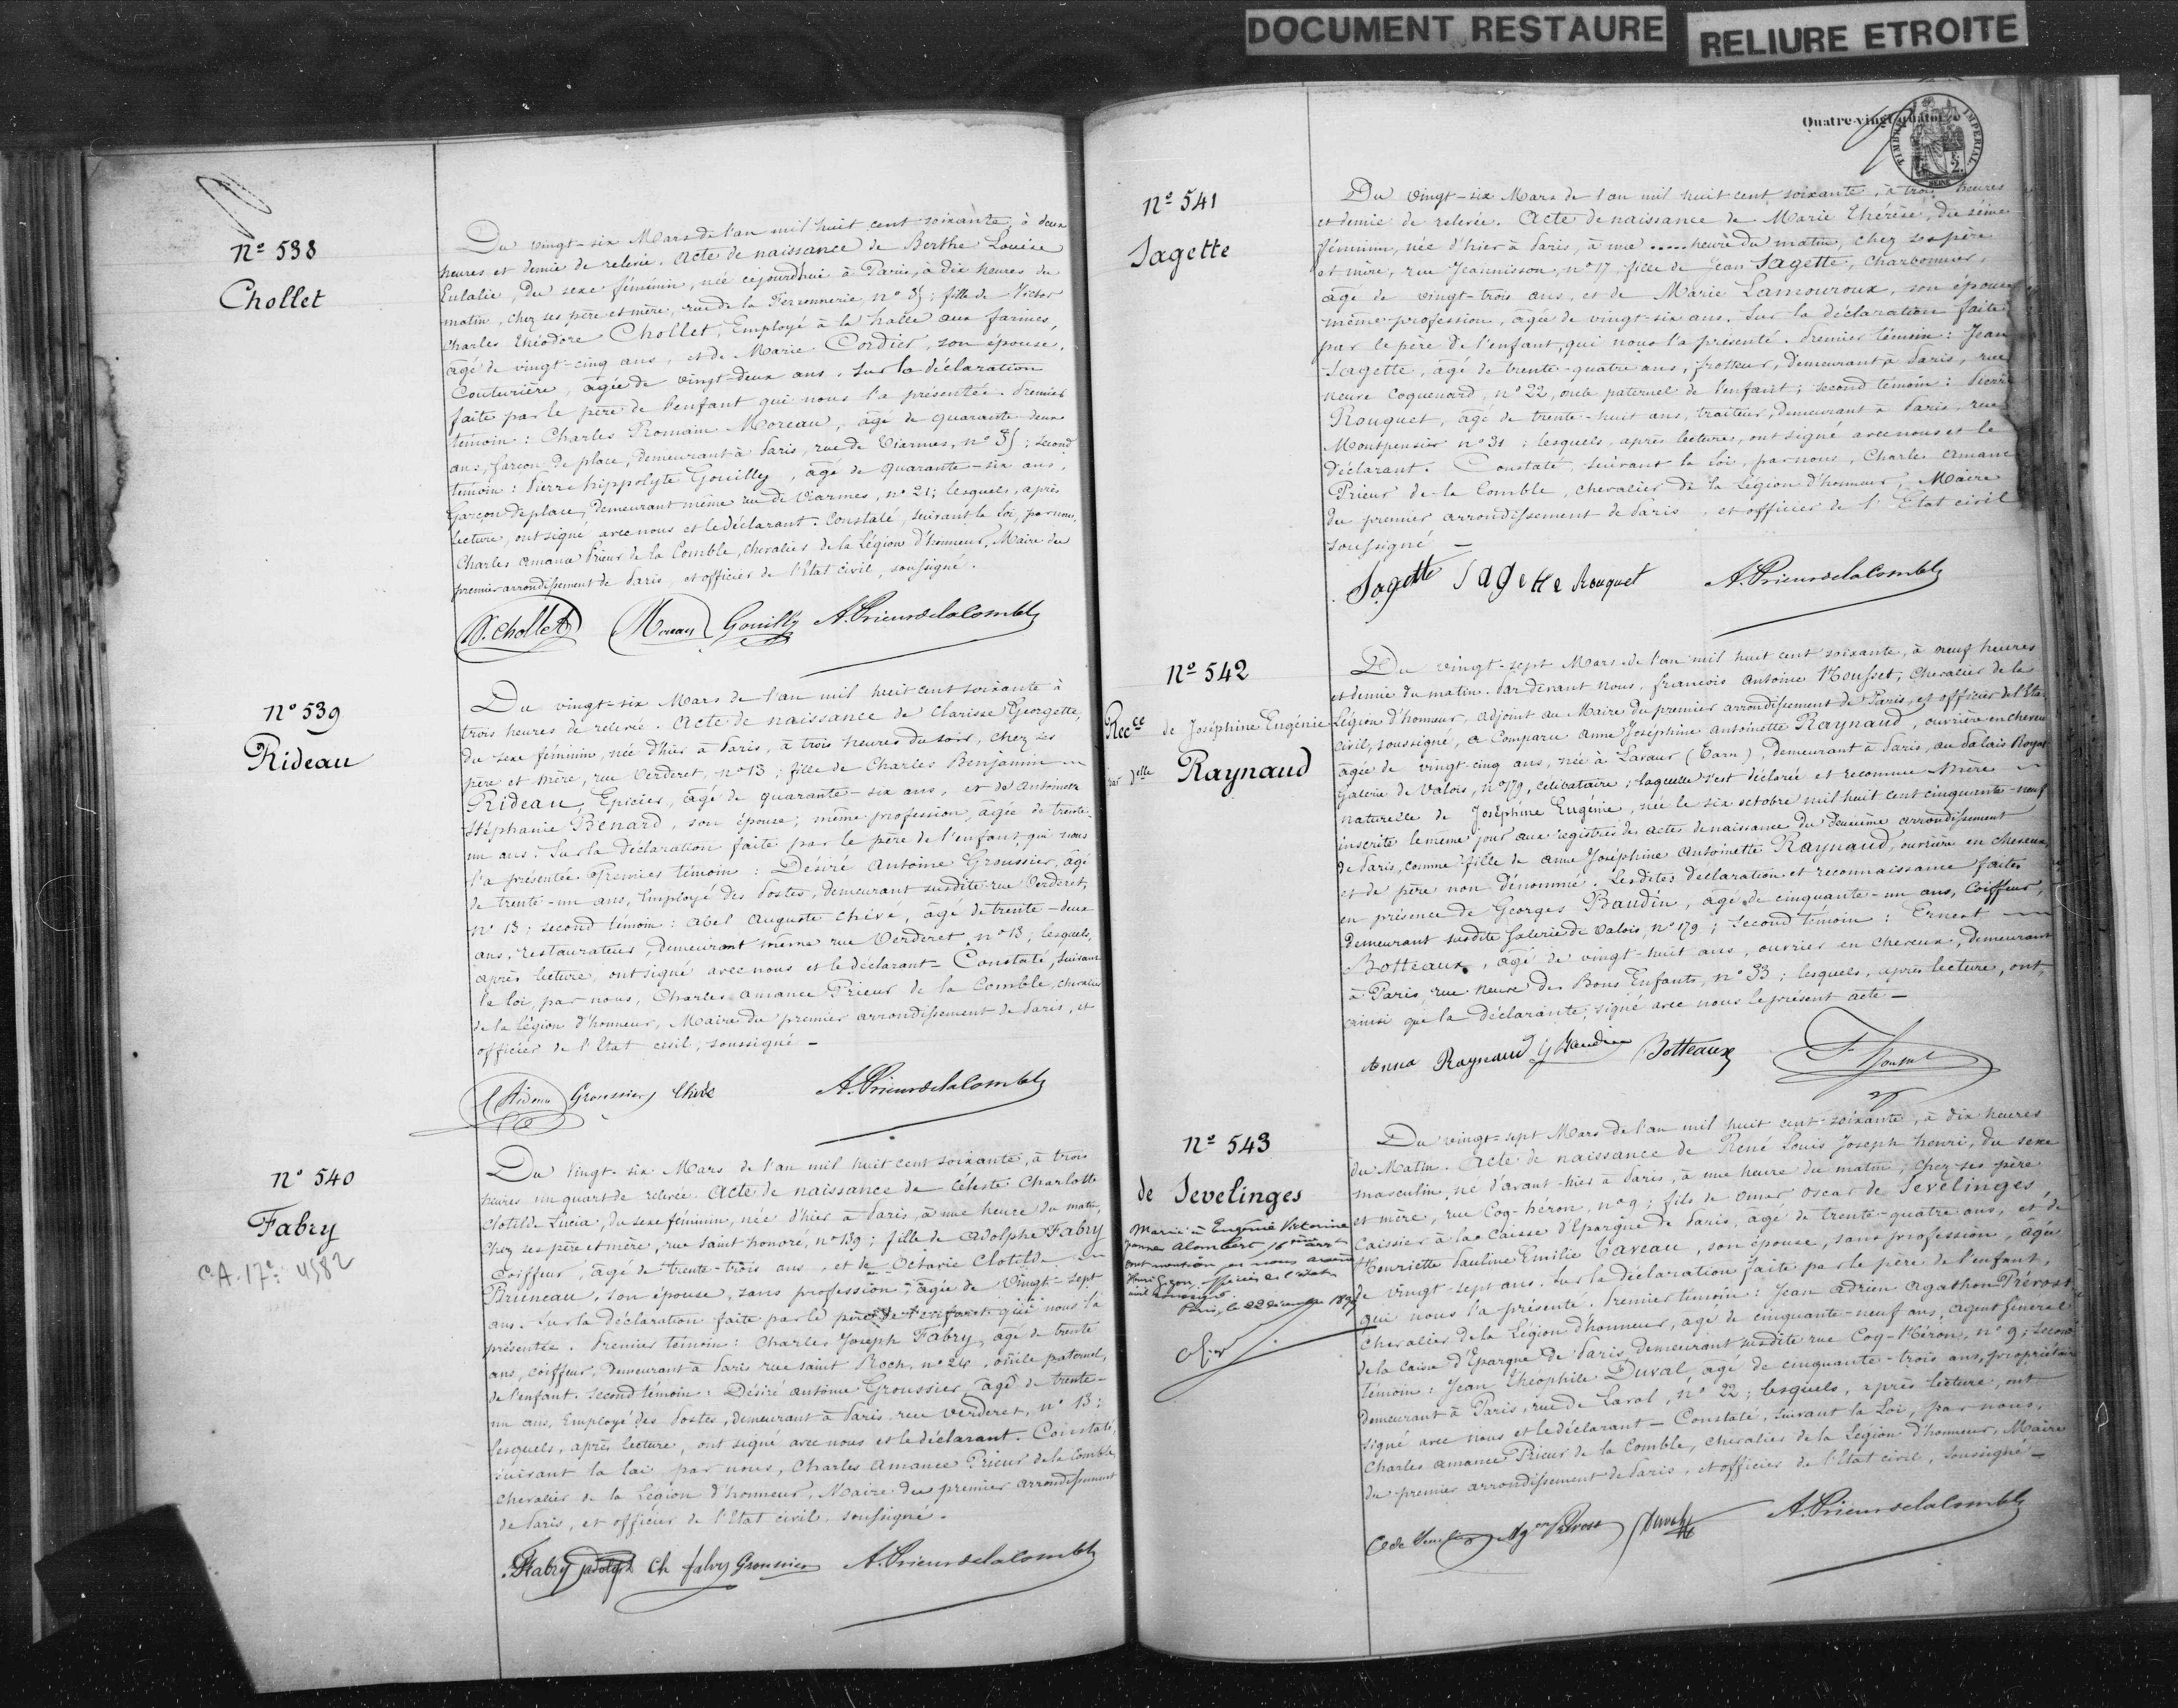 DOCUMENT RESTAURE
RELIURE ETROITE
Nº 538
Chollet
Du vingt-six Mars de l'an mil huit cent soixante, à deux
heures et demie de relevée. Acte de naissance de Berthe Louise
Eulalie, du sexe féminin, née cejourd'hui à Paris, à dix heures du
matin, chez ses père et mère, rue de la Ferronnerie, nº 35; fille de Victor
Charles Théodore Chollet, Employé à la halle aux farines,
âgé de vingt-cinq ans, et de Marie Cordier, son épouse,
Couturière, âgée de vingt-deux ans. Sur la déclaration
faite par le père de l'enfant qui nous l'a présentée. Premier
témoin: Charles Romain Moreau, âgé de quarante-deux
ans, garçon de place, demeurant à Paris, rue de Viarmes, nº 35; second
témoin: Pierre hippolyte Gouilly, âgé de quarante-six ans,
Garçon de place, demeurant même rue de Viarmes, nº 21; lesquels, après
lecture, ont signé avec nous et le déclarant. Constaté, suivant la Loi, par nous,
Charles Amance Prieur de la Comble, chevalier de la Légion d'honneur, Maire du
premier arrondissement de Paris, et officier de l'Etat civil, soussigné.
V. Chollet Moreau Gouilly A. Prieur de la Comble
Nº 539
Rideau
Du vingt-six Mars de l'an mil huit cent soixante à
trois heures de relevée. Acte de naissance de Clarisse Georgette,
du sexe féminin, née d'hier à Paris, à trois heures du soir, chez ses
père et mère, rue Verderet, nº 13; fille de Charles Benjamin
Rideau, Epicier, âgé de quarante-six ans, et de Antoinette
Stéphanie Benard, son épouse, même profession, âgée de trente-
un ans. Sur la déclaration faite par le père de l'enfant, qui nous
l'a présentée. Premier témoin: Désiré Antoine Groussier, âgé
de trente-un ans, Employé des Postes, demeurant susdite rue Verderet,
nº 13; second témoin: Abel Auguste Chivé, âgé de trente-deux
ans, Restaurateur, demeurant même rue Verderet, nº 13; lesquels,
après lecture, ont signé avec nous et le déclarant - Constaté, suivant
la loi, par nous, Charles Amance Prieur de la Comble, chevalier
de la Légion d'honneur, Maire du premier arrondissement de Paris, et
officier de l'Etat civil, soussigné -
Rideau Groussier Chivé A. Prieur de la Comble
Nº 540
Fabry
C.A. 17e: 4582
Du Vingt-six Mars de l'an mil huit cent soixante, à trois
heures un quart de relevée. Acte de naissance de Céleste Charlotte
Clotilde Lucia, du sexe féminin, née d'hier à Paris, à une heure du matin,
chez ses père et mère, rue Saint honoré, nº 139; fille de Adolphe Fabry
Coiffeur, âgé de trente-trois ans, et de Octavie Clotilde
Bruneau, son épouse, sans profession, âgée de Vingt-sept
ans. Sur la déclaration faite par le père de l'enfant qui nous l'a
présentée. Premier témoin: Charles Joseph Fabry, âgé de trente
ans, coiffeur, demeurant à Paris rue Saint Roch, nº 24, oncle paternel,
de l'enfant. Second témoin: Désiré Antoine Groussier, âgé de trente-
un ans, Employé des Postes, demeurant à Paris rue Verderet, nº 13;
lesquels, après lecture, ont signé avec nous et le déclarant. Constaté,
suivant la loi, par nous, Charles Amance Prieur de la Comble,
chevalier de la Légion d'honneur, Maire du premier arrondissement
de Paris, et officier de l'Etat civil, soussigné.
Fabry Adolph Ch fabry Groussier A. Prieur de la Comble
Quatre-vingt-quatorze
TIMBRE IMPERIAL
SEINE
Nº 541
Sagette
Du Vingt-six Mars de l'an mil huit cent soixante, à trois heures
et demie de relevée. Acte de naissance de Marie Thérèse, du sexe
féminin, née d'hier à Paris, à une ..... heure du matin, chez ses père
et mère, rue Jeannisson, nº 17, fille de Jean Sagette, Charbonnier,
âgé de vingt-trois ans, et de Marie Lamouroux, son épouse
même profession, âgée de vingt-six ans. Sur la déclaration faite
par le père de l'enfant, qui nous l'a présenté. Premier témoin: Jean
Sagette, âgé de trente-quatre ans, frotteur, demeurant à Paris, rue
neuve Coquenard, nº 22, oncle paternel de l'enfant; second témoin: Pierre
Rouquet, âgé de trente-huit ans, traiteur, demeurant à Paris, rue
Montpensier nº 31; lesquels, après lecture, ont signé avec nous et le
déclarant. Constaté, suivant la loi, par nous, Charles Amance
Prieur de la Comble, chevalier de la Légion d'honneur, Maire
du premier arrondissement de Paris, et officier de l'Etat civil
soussigné -
Sagette Sagette Rouquet A. Prieur de la Comble
Nº 542
Recce de Joséphine Eugénie
par Delle Raynaud
Du vingt-sept Mars de l'an mil huit cent soixante, à neuf heures
et demie du matin. Par devant Nous, françois Antoine Housset, Chevalier de la
Légion d'honneur, adjoint au Maire du premier arrondissement de Paris, et officier de l'Etat
civil, soussigné, a Comparu Anne Joséphine Antoinette Raynaud, ouvrière en cheveux
âgée de vingt-cinq ans, née à Lavaur (Tarn), demeurant à Paris, au Palais Royal
galerie de Valois, nº 179, célibataire; laquelle s'est déclarée et reconnue Mère
naturelle de Joséphine Eugénie, née le six octobre mil huit cent cinquante-neuf
inscrite le même jour aux registres des actes de naissance du deuxième arrondissement
de Paris, comme fille de Anne Joséphine Antoinette Raynaud, ouvrière en cheveux,
et de père non dénommé. Lesdites déclaration et reconnaissance faites
en présence de Georges Baudin, âgé de cinquante-un ans, Coiffeur,
demeurant susdite Galerie de Valois, nº 179; Second témoin: Ernest
Botteaux, âgé de vingt-huit ans, ouvrier en cheveux, demeurant
à Paris, rue neuve des Bons Enfants, nº 33; lesquels, après lecture, ont,
ainsi que la déclarante, signé avec nous le présent acte -
Anna Raynaud G Baudin Botteaux F Housset
Nº 543
de Sevelinges
Marié à Eugénie Victorine
Jeanne Alombert, 16me arrt
dont mention par nous
Henri Gigon, officier de l'état
civil soussigné.
Paris, le 22 décembre
Du vingt-sept Mars de l'an mil huit cent-soixante, à dix heures
du Matin. Acte de naissance de René Louis Joseph henri, du sexe
masculin, né d'avant-hier à Paris, à une heure du matin, chez ses père
et mère, rue Coq-héron, nº 9; fils de Omer Oscar de Sevelinges,
Caissier à la Caisse d'Epargne de Paris, âgé de trente-quatre ans, et de
Henriette Pauline Emilie Caveau, son épouse, sans profession, âgée
de vingt-sept ans. Sur la déclaration faite par le père de l'enfant,
qui nous l'a présenté. Premier témoin: Jean Adrien Agathon Prévost
chevalier de la Légion d'honneur, âgé de cinquante-neuf ans, agent général
de la Caisse d'Epargne de Paris demeurant susdite rue Coq-Héron, nº 9; second
témoin: Jean Théophile Duval, âgé de cinquante-trois ans, propriétaire
demeurant à Paris, rue de Laval, nº 22; lesquels, après lecture, ont
signé avec nous et le déclarant - Constaté, suivant la Loi, par nous,
Charles Amance Prieur de la Comble, chevalier de la Légion d'honneur, Maire
du premier arrondissement de Paris, et officier de l'Etat civil, soussigné -
Agon Prévost Duval A. Prieur de la Comble